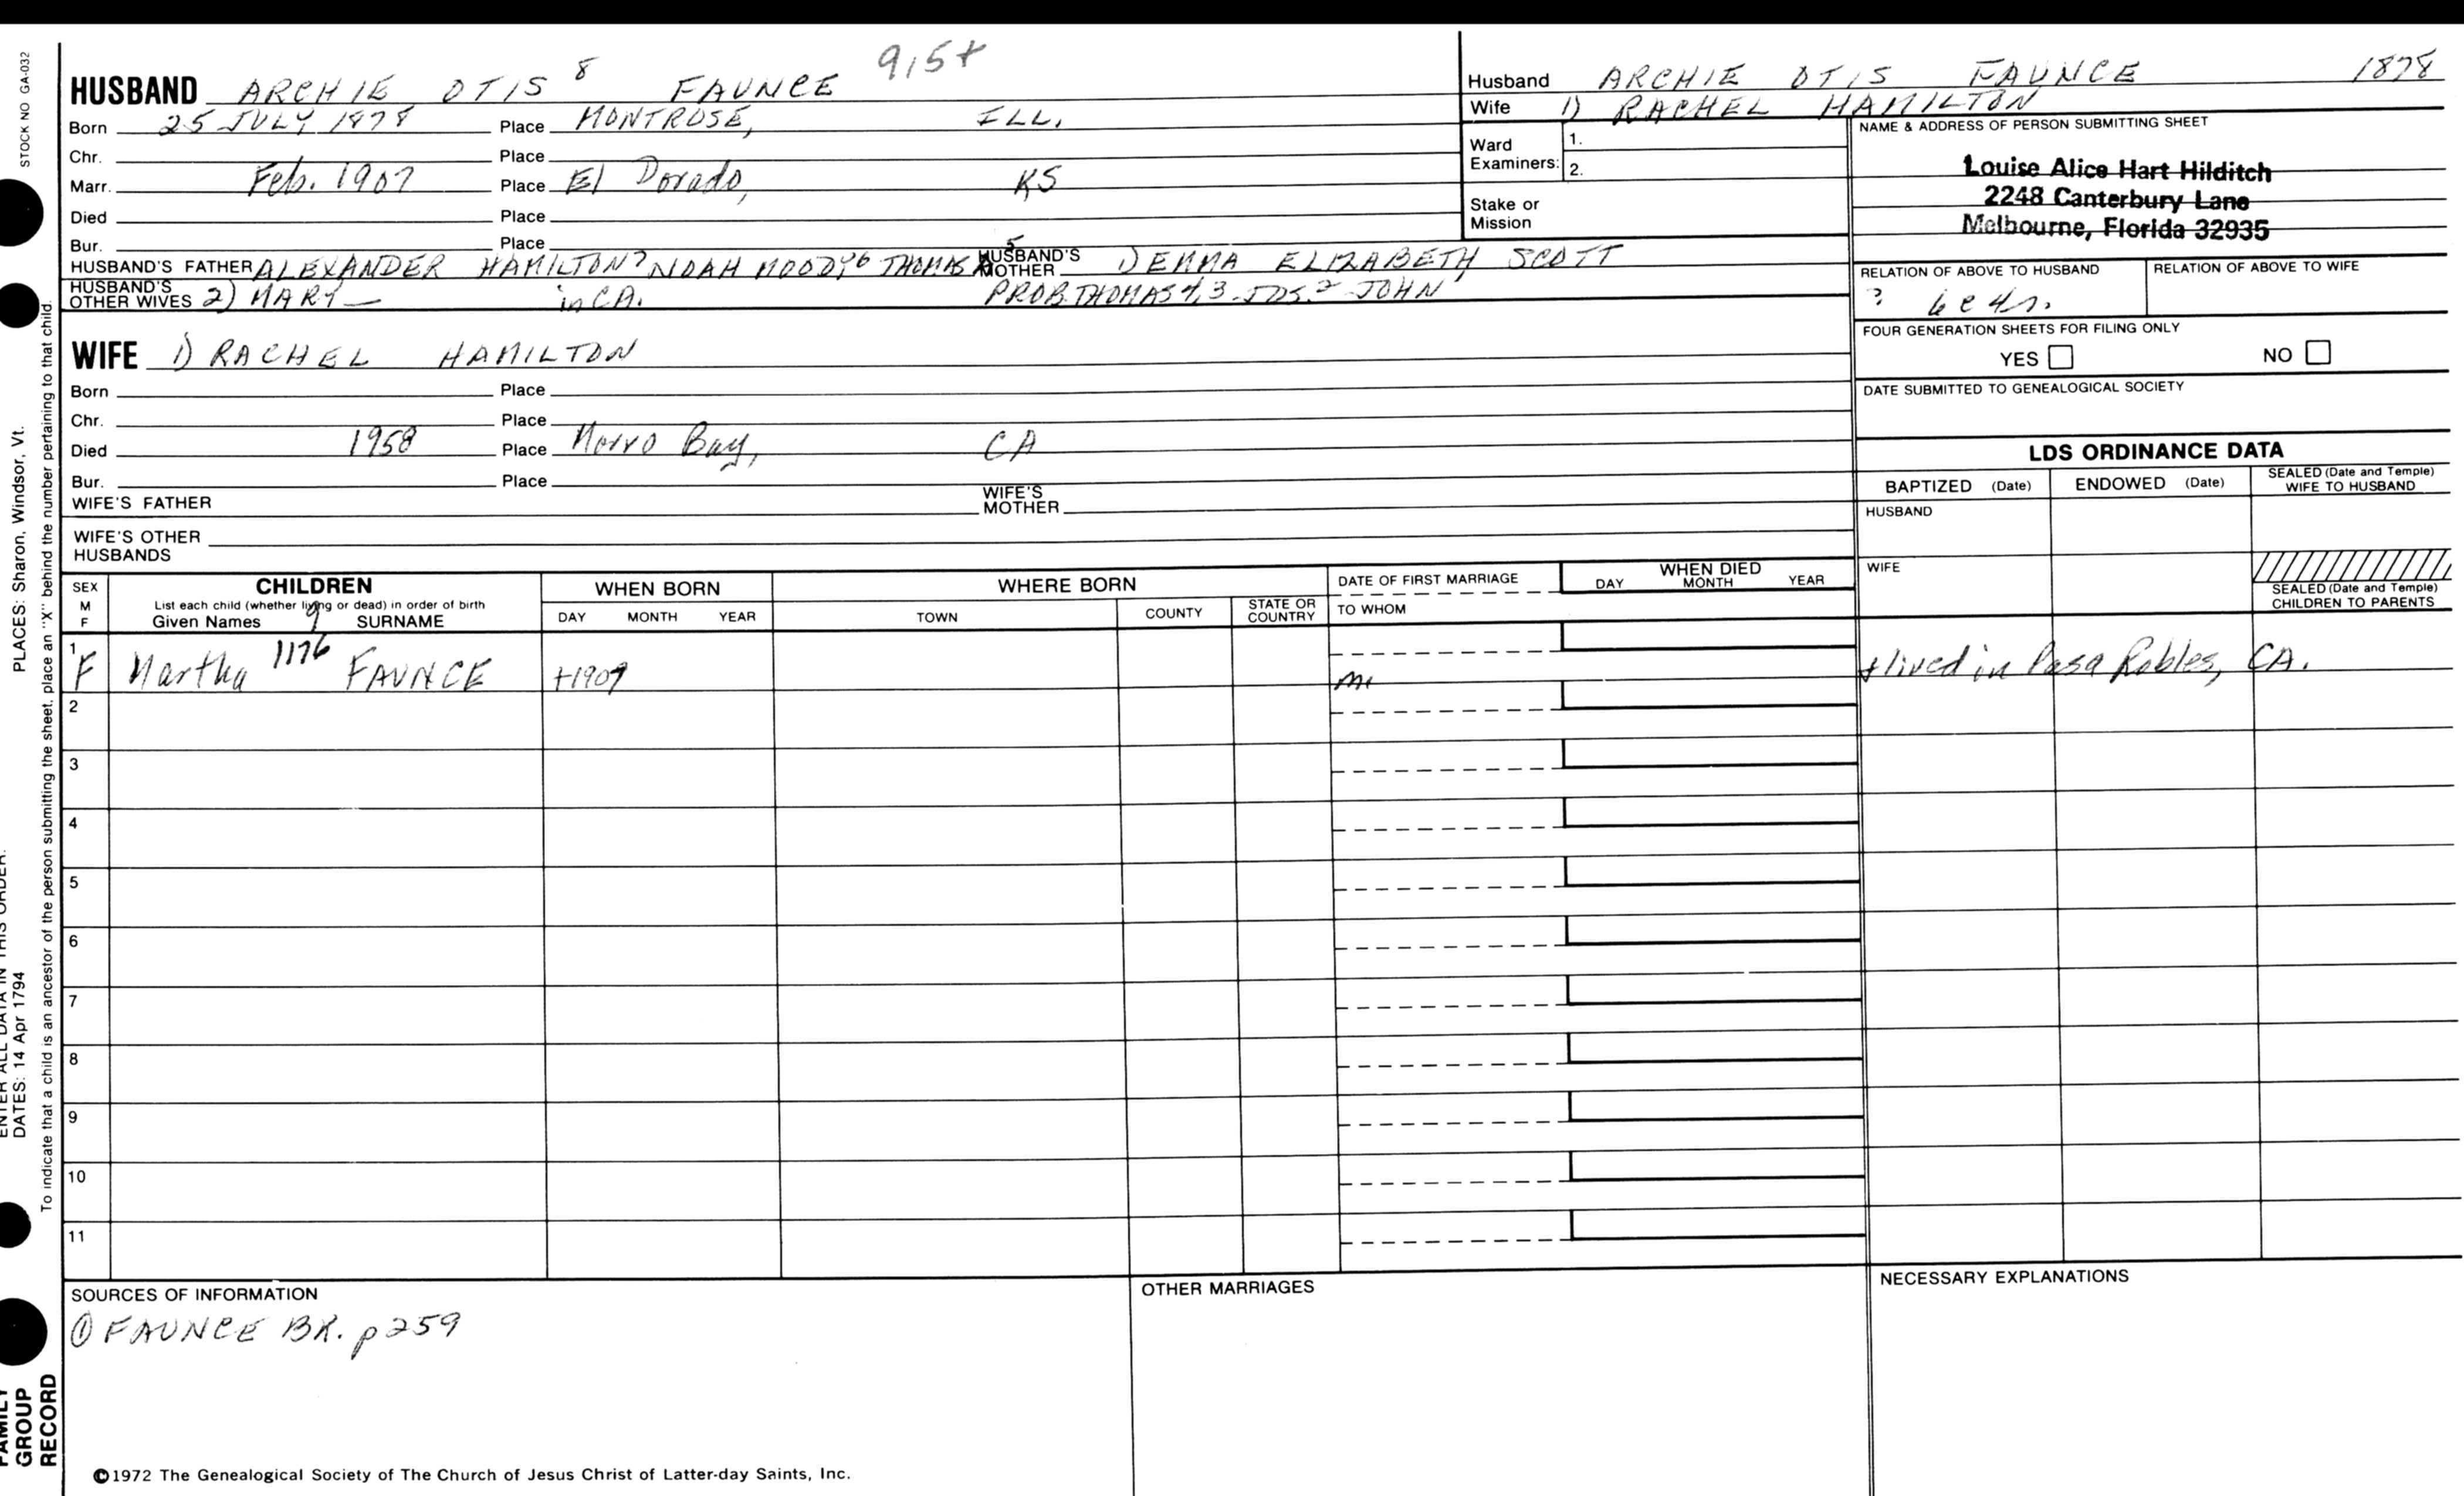 STOCK NO GA-032
HUSBAND ARCHIE OTIS 8 FAUNCE 915+
Born 25 JULY 1878 Place MONTROSE, ILL.
Chr. Place
Marr. Feb. 1907 Place El Dorado, KS
Died Place
Bur. Place
HUSBAND'S FATHER ALEXANDER HAMILTON 7 NOAH MOODY, 6 THOMAS 5 HUSBAND'S MOTHER 1) EMMA ELIZABETH SCOTT
HUSBAND'S OTHER WIVES 2) MARY — in CA. PROB. THOMAS 4, 3 JOS. 2 JOHN
Husband ARCHIE OTIS FAUNCE 1878
Wife 1) RACHEL HAMILTON
Ward Examiners: 1.
2.
Stake or Mission
NAME & ADDRESS OF PERSON SUBMITTING SHEET
Louise Alice Hart Hilditch
2248 Canterbury Lane
Melbourne, Florida 32935
RELATION OF ABOVE TO HUSBAND RELATION OF ABOVE TO WIFE
?
FOUR GENERATION SHEETS FOR FILING ONLY
YES NO
DATE SUBMITTED TO GENEALOGICAL SOCIETY
WIFE 1) RACHEL HAMILTON
Born Place
Chr. Place
Died 1958 Place Morro Bay, CA
Bur. Place
WIFE'S FATHER WIFE'S MOTHER
WIFE'S OTHER HUSBANDS
LDS ORDINANCE DATA
BAPTIZED (Date) ENDOWED (Date) SEALED (Date and Temple) WIFE TO HUSBAND
HUSBAND
WIFE
SEALED (Date and Temple) CHILDREN TO PARENTS
SEX M F
CHILDREN
List each child (whether living or dead) in order of birth
Given Names 9 SURNAME
WHEN BORN
DAY MONTH YEAR
WHERE BORN
TOWN COUNTY STATE OR COUNTRY
DATE OF FIRST MARRIAGE
TO WHOM
WHEN DIED
DAY MONTH YEAR
1 F Martha 1176 FAUNCE +1909 m. + lived in Pasa Robles, CA.
2
3
4
5
6
7
8
9
10
11
SOURCES OF INFORMATION
① FAUNCE BK. p 259
OTHER MARRIAGES
NECESSARY EXPLANATIONS
©1972 The Genealogical Society of The Church of Jesus Christ of Latter-day Saints, Inc.
PLACES: Sharon, Windsor, Vt.
ENTER ALL DATA IN THIS ORDER:
DATES: 14 Apr 1794
To indicate that a child is an ancestor of the person submitting the sheet, place an "X" behind the number pertaining to that child.
FAMILY
GROUP
RECORD